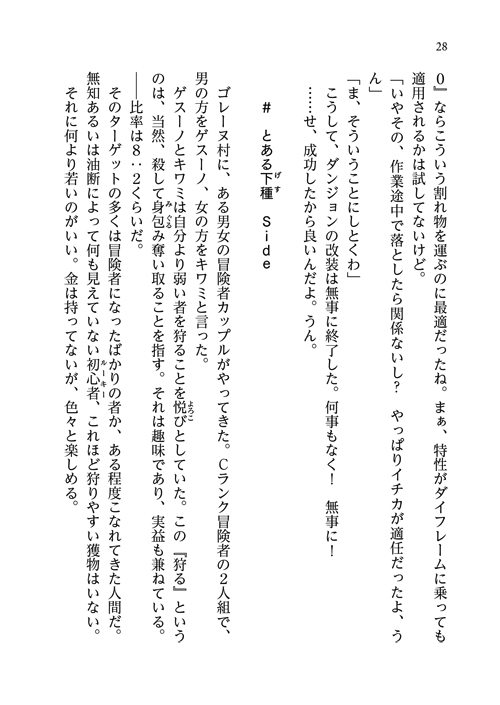 28
０』ならこういう割れ物を運ぶのに最適だったね。まぁ、特性がダイフレームに乗っても
適用されるかは試してないけど。
「いやその、作業途中で落としたら関係ないし？　やっぱりイチカが適任だったよ、う
ん」
「ま、そういうことにしとくわ」
こうして、ダンジョンの改装は無事に終了した。何事もなく！　無事に！
……せ、成功したから良いんだよ。うん。
＃　とある下種　Ｓｉｄｅ
ゴレーヌ村に、ある男女の冒険者カップルがやってきた。Ｃランク冒険者の２人組で、
男の方をゲスーノ、女の方をキワミと言った。
ゲスーノとキワミは自分より弱い者を狩ることを悦びとしていた。この『狩る』という
のは、当然、殺して身包み奪い取ることを指す。それは趣味であり、実益も兼ねている。
――比率は８：２くらいだ。
そのターゲットの多くは冒険者になったばかりの者か、ある程度こなれてきた人間だ。
無知あるいは油断によって何も見えていない初心者、これほど狩りやすい獲物はいない。
それに何より若いのがいい。金は持ってないが、色々と楽しめる。